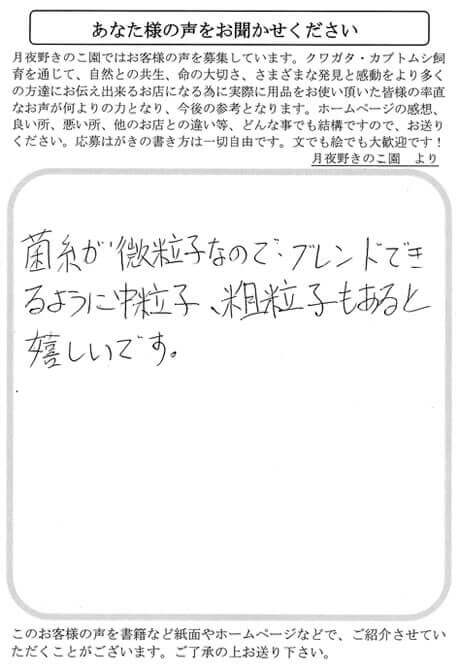 あなた様の声をお聞かせください
月夜野きのこ園ではお客様の声を募集しています。クワガタ・カブトムシ飼
育を通じて、自然との共生、命の大切さ、さまざまな発見と感動をより多く
の方達にお伝え出来るお店になる為に実際に用品をお使い頂いた皆様の率直
なお声が何よりの力となり、今後の参考となります。ホームページの感想、
良い所、悪い所、他のお店との違い等、どんな事でも結構ですので、お送り
ください。応募はがきの書き方は一切自由です。文でも絵でも大歓迎です！
月夜野きのこ園　より
菌糸が微粒子なので、ブレンドでき
るように中粒子、粗粒子もあると
嬉しいです。
このお客様の声を書籍など紙面やホームページなどで、ご紹介させてい
ただくことがございます。ご了承の上お送り下さい。